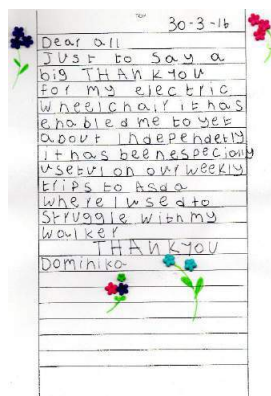 30-3-16
Dear all
Just to say a
big THANKYOU
for my electric
wheelchair it has
enabled me to get
about Independetly
it has been especially
useful on our weekly
trips to Asda
where I used to
Struggle with my
walker
THANKYOU
Dominika